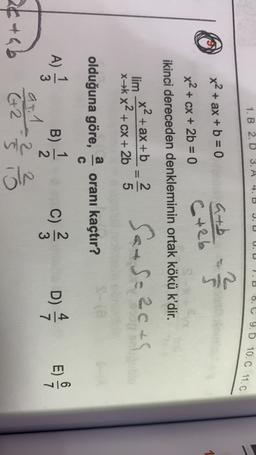 1. B 2. D 3. A
9. D 10. C 11. C
x² + ax + b = 0
x² + cx + 2b = 0
ikinci dereceden denkleminin ortak kökü k'dir.
lim x→k (x² + ax + b)/(x² + cx + 2b) = 2/5
olduğuna göre, a/c oranı kaçtır?
A) 1/3 B) 1/2 C) 2/3 D) 4/7 E) 6/7
(a+b)/(c+2b) = 2/5
5a+5=2c+